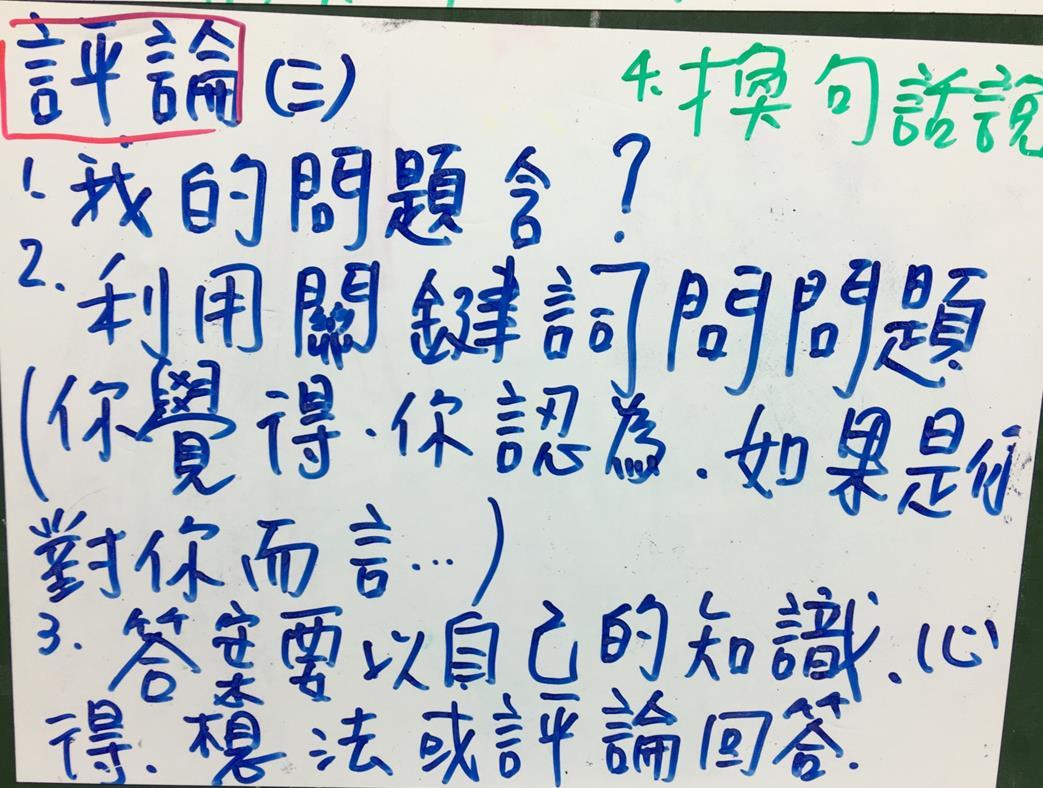 評論(三)
4.換句話說
1.我的問題含?
2.利用關鍵詞問問題
(你覺得.你認為.如果是你
對你而言…)
3.答案要以自己的知識.心
得.想法或評論回答.